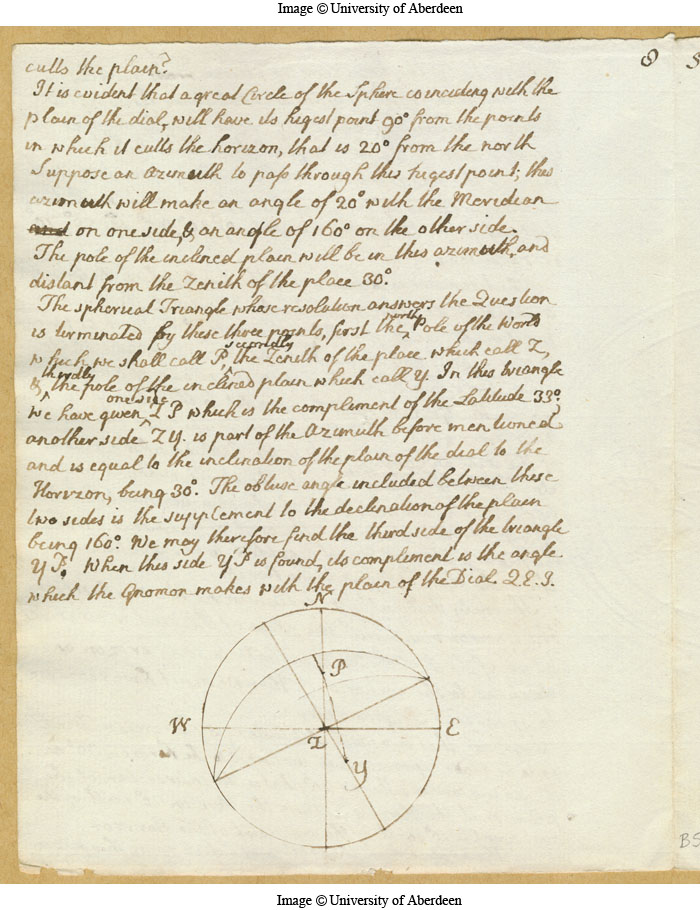 Image © University of Aberdeen
8
cutts the plain?
It is evident that a great Circle of the Sphere coinciding with the
plain of the dial, will have its higest point 90° from the points
in which it cutts the horizon, that is 20° from the north
Suppose an azimuth to pass through this higest point; this
azimuth will make an angle of 20° with the Meridian
and on one side, & an angle of 160° on the other side.
The pole of the inclined plain will be in this azimuth, and
distant from the Zenith of the place 30°.
The spherical Triangle whose resolution answers the Question
is terminated by these three points, first the north Pole of the World
which we shall call P, secondly the Zenith of the place which call Z,
& thirdly the pole of the inclined plain which call Y. In this triangle
we have given one side Z P which is the compliment of the Latitude 33°.
another side Z Y. is part of the Azimuth before mentioned
and is equal to the inclination of the plain of the dial to the
Horizon, being 30°. The obtuse angle included between these
two sides is the supplement to the declination of the plain
being 160°. We may therefore find the third side of the triangle
Y P. When this side Y P is found, its complement is the angle
which the Gnomon makes with the plain of the Dial. Q.E.I.
N
P
W
E
Z
Y
BS
Image © University of Aberdeen